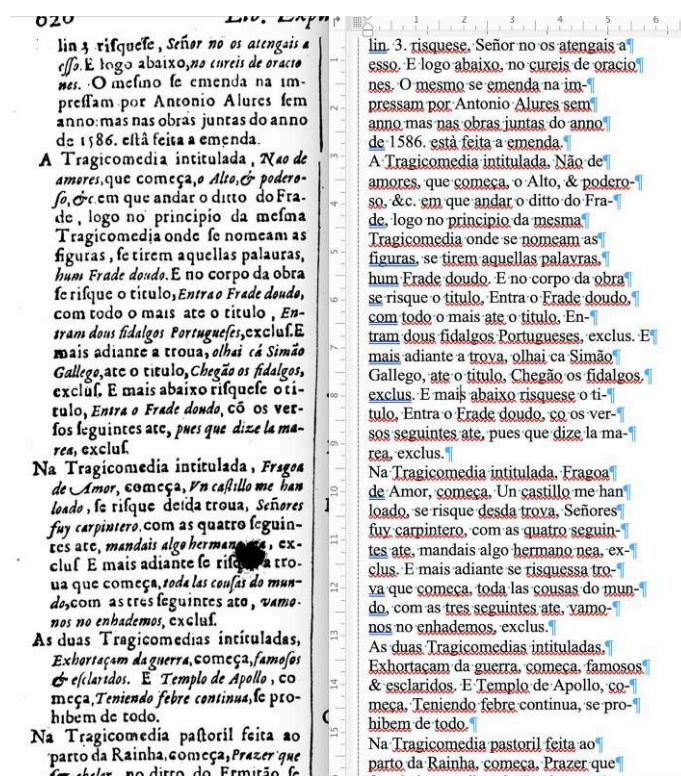 lin 3 riſqueſe, Señor nó os atengais a
eſſo. E logo abaixo, no cureis de oracio
nes. O meſmo ſe emenda na im-
preſſam por Antonio Alures ſem
anno: mas nas obras juntas do anno
de 1586. eſtâ feita a emenda.
A Tragicomedia intitulada, Nao de
amores, que começa, o Alto, & podero-
ſo, &c. em que andar o ditto do Fra-
de, logo no principio da meſma
Tragicomedia onde ſe nomeam as
figuras, ſe tirem aquellas palauras,
hum Frade doudo. E no corpo da obra
ſe riſque o titulo, Entra o Frade doudo,
com todo o mais ate o titulo, En-
tram dous fidalgos Portugueſes, excluſ. E
mais adiante a troua, olhai cá Simão
Gallego, ate o titulo, Chegão os fidalgos,
excluſ. E mais abaixo riſqueſe o ti-
tulo, Entra o Frade doudo, cõ os ver-
ſos ſeguintes ate, pues que dize la ma-
rea, excluſ.
Na Tragicomedia intitulada, Fragoa
de Amor, começa, Vn caſtillo me han
loado, ſe riſque deſda troua, Señores
fuy carpintero, com as quatro ſeguin-
tes ate, mandais algo hermano, ex-
cluſ E mais adiante ſe a tro-
ua que começa, toda las couſas do mun-
do, com as tres ſeguintes ate, vamo-
nos no enhademos, excluſ.
As duas Tragicomedias intituladas,
Exhortaçam da guerra, começa, famoſos
& eſclaridos. E Templo de Apollo, co
meça, Teniendo febre continua, ſe pro-
hibem de todo.
Na Tragicomedia paſtoril feita ao
parto da Rainha, começa, Prazer que
1 2 3 4 5 6
lin. 3. risquese, Señor no os atengais a¶
esso. E logo abaixo, no cureis de oracio¶
nes. O mesmo se emenda na im-¶
pressam por Antonio Alures sem¶
anno mas nas obras juntas do anno¶
de 1586. està feita a emenda.¶
A Tragicomedia intitulada, Não de¶
amores, que começa, o Alto, & podero-¶
so, &c. em que andar o ditto do Fra-¶
de, logo no principio da mesma¶
Tragicomedia onde se nomeam as¶
figuras, se tirem aquellas palavras,¶
hum Frade doudo. E no corpo da obra¶
se risque o titulo, Entra o Frade doudo,¶
com todo o mais ate o titulo, En-¶
tram dous fidalgos Portugueses, exclus. E¶
mais adiante a trova, olhai ca Simão¶
Gallego, ate o titulo, Chegão os fidalgos,¶
exclus. E mais abaixo risquese o ti-¶
tulo, Entra o Frade doudo, co os ver-¶
sos seguintes ate, pues que dize la ma-¶
rea, exclus.¶
Na Tragicomedia intitulada, Fragoa¶
de Amor, começa, Un castillo me han¶
loado, se risque desda trova, Señores¶
fuy carpintero, com as quatro seguin-¶
tes ate, mandais algo hermano nea, ex-¶
clus. E mais adiante se risquessa tro-¶
va que começa, toda las cousas do mun-¶
do, com as tres seguintes ate, vamo-¶
nos no enhademos, exclus.¶
As duas Tragicomedias intituladas,¶
Exhortaçam da guerra, começa, famosos¶
& esclaridos. E Templo de Apollo, co-¶
meça, Teniendo febre continua, se pro-¶
hibem de todo.¶
Na Tragicomedia pastoril feita ao¶
parto da Rainha, começa, Prazer que¶